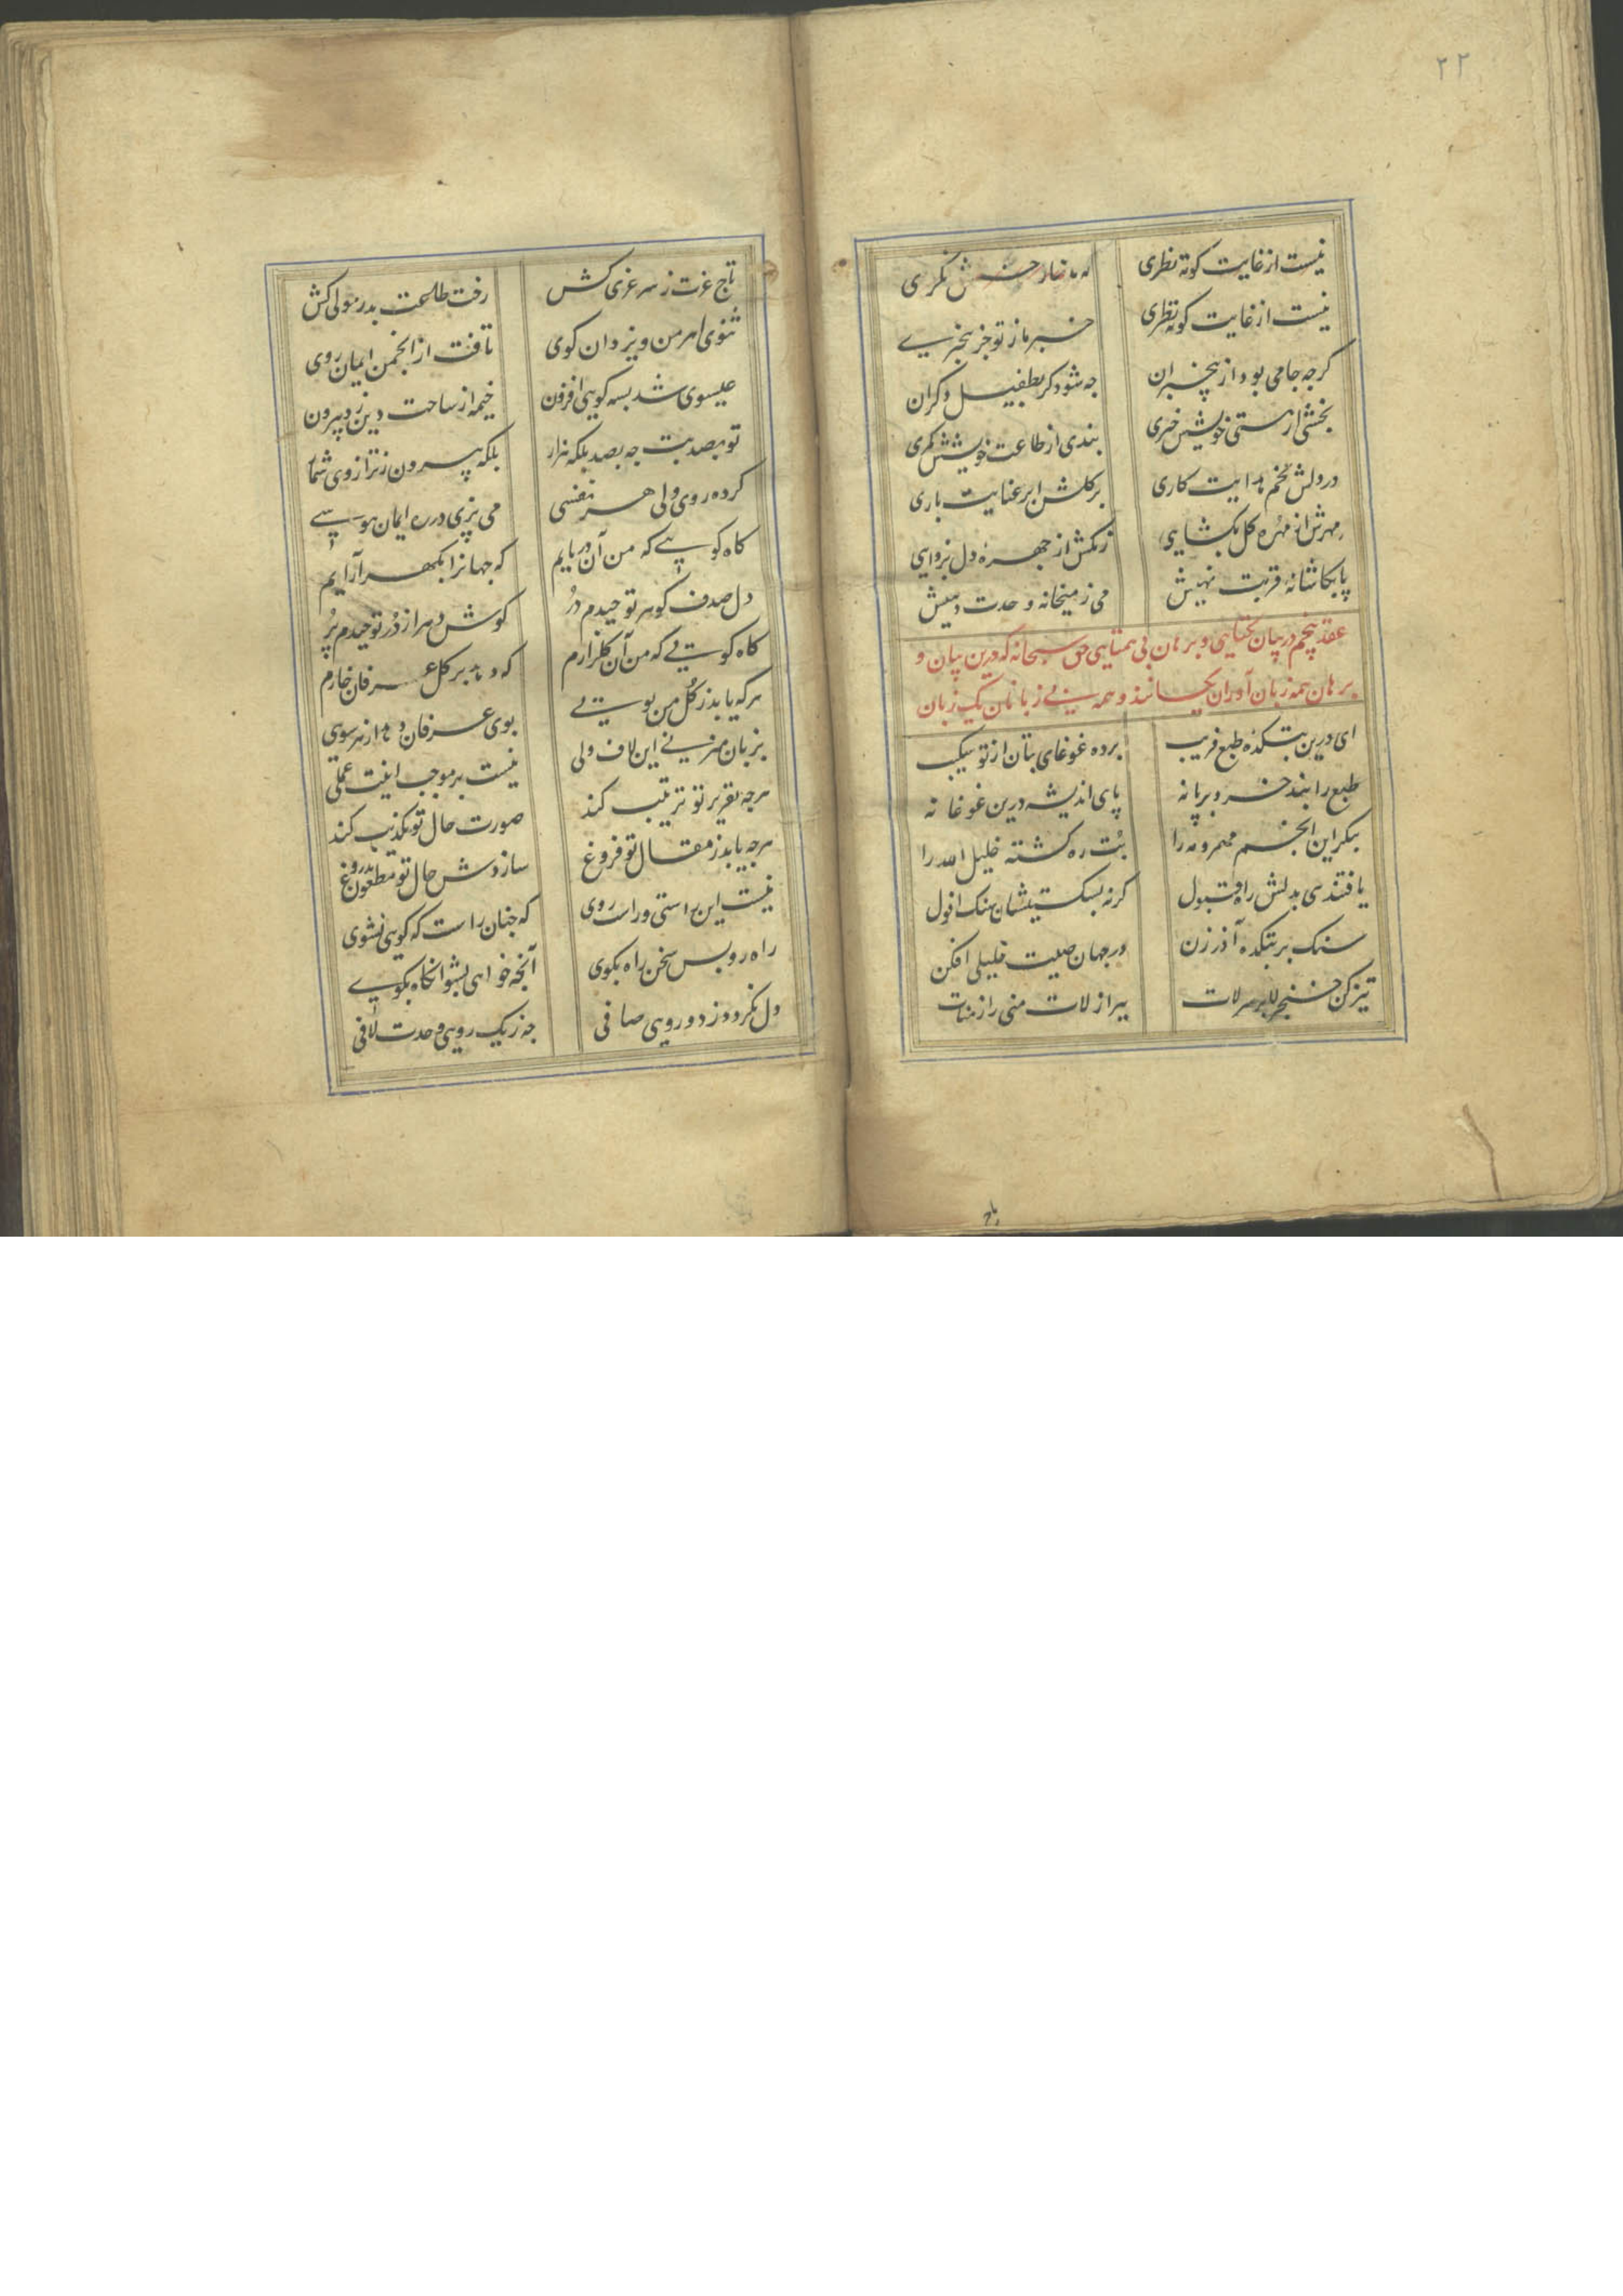 ۲۲
نیست از غایت کوته نظری خویش نکری
نیست از غایت کوته نظری خبر ما ز تو جز بیخبری
کرجه جامی بود از بیخبران جه شود کر بطفیل دکران
بخشی از هستی خویشش خبری بندی از طاعت خویشش کمری
در دلش تخم هدایت کاری بر کلش ابر عنایت باری
مهرش از مهره کل بکشایی زنکش از جهرهٔ دل بزدایی
پا بکاشانهٔ قربت نهیش می ز میخانه وحدت دهیش
عقد پنجم در بیان یکتایی و برهان بی همتایی حق سبحانه که درین بیان و
برهان همه زبان آوران یکسانند و همه بی زبانان یک زبان
ای درین بتکدهٔ طبع فریب برده غوغای بتان از تو شکیب
طبع را بند خرد بر پا نه پای اندیشه درین غوغا نه
بنکر این انجم و مهر و مه را بت ره کشته خلیل الله را
یافتندی بدلش راه قبول کر نه بشکستیشان سنک افول
سنک بر بتکده آذر زن در جهان صیت خلیلی افکن
تیز کن خنجر لا بر سر لات ببر از لات منی را ز منات
تاج عزت ز سر عزی کش رخت طاعت بدر مولی کش
ثنوی اهرمن و یزدان کوی تافت از انجمن ایمان روی
عیسوی شد بسه کویی افزون خیمه از ساحت دین زد بیرون
تو بصد بت جه بصد بلکه هزار بلکه بیرون تر از روی شمار
کرده روی ولی هر نفسی می پزی در ره ایمان هوسی
کاه کویی که من آن دریایم که جهانرا بکهر آرایم
دل صدف کوهر توحیدم در کوش دهر از در توحیدم پر
کاه کویی که من آن کلزارم که دمد بر کل عرفان خارم
هر که یابد ز کل من بویی بوی عرفان دهد از هر سویی
بزبان میزنی این لاف ولی نیست بر موجب اینت عملی
هر جه تقریر تو ترتیب کند صورت حال تو تکذیب کند
هر جه یابد ز مقال تو فروغ سازدش حال تو مطعون بدروغ
نیست این راستی و راست روی که جنان راست که کویی نشوی
راه رو پس سخن راه بکوی آنجه خواهی بشو آنکاه بکوی
دل نکردد ز دو رویی صافی جه ز یک رویی و حدت لافی